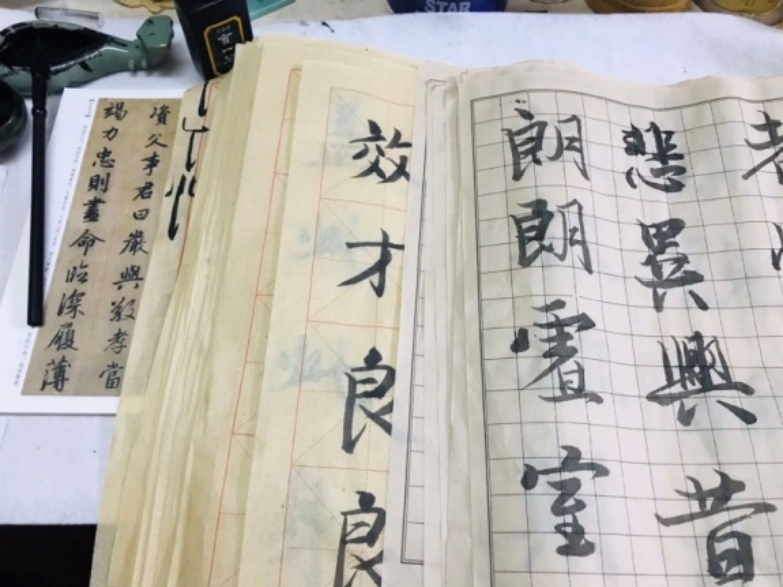 STAR
悲異興昔
朗朗室
效才良良
資父事君曰嚴與敬孝當
竭力忠則盡命臨深履薄